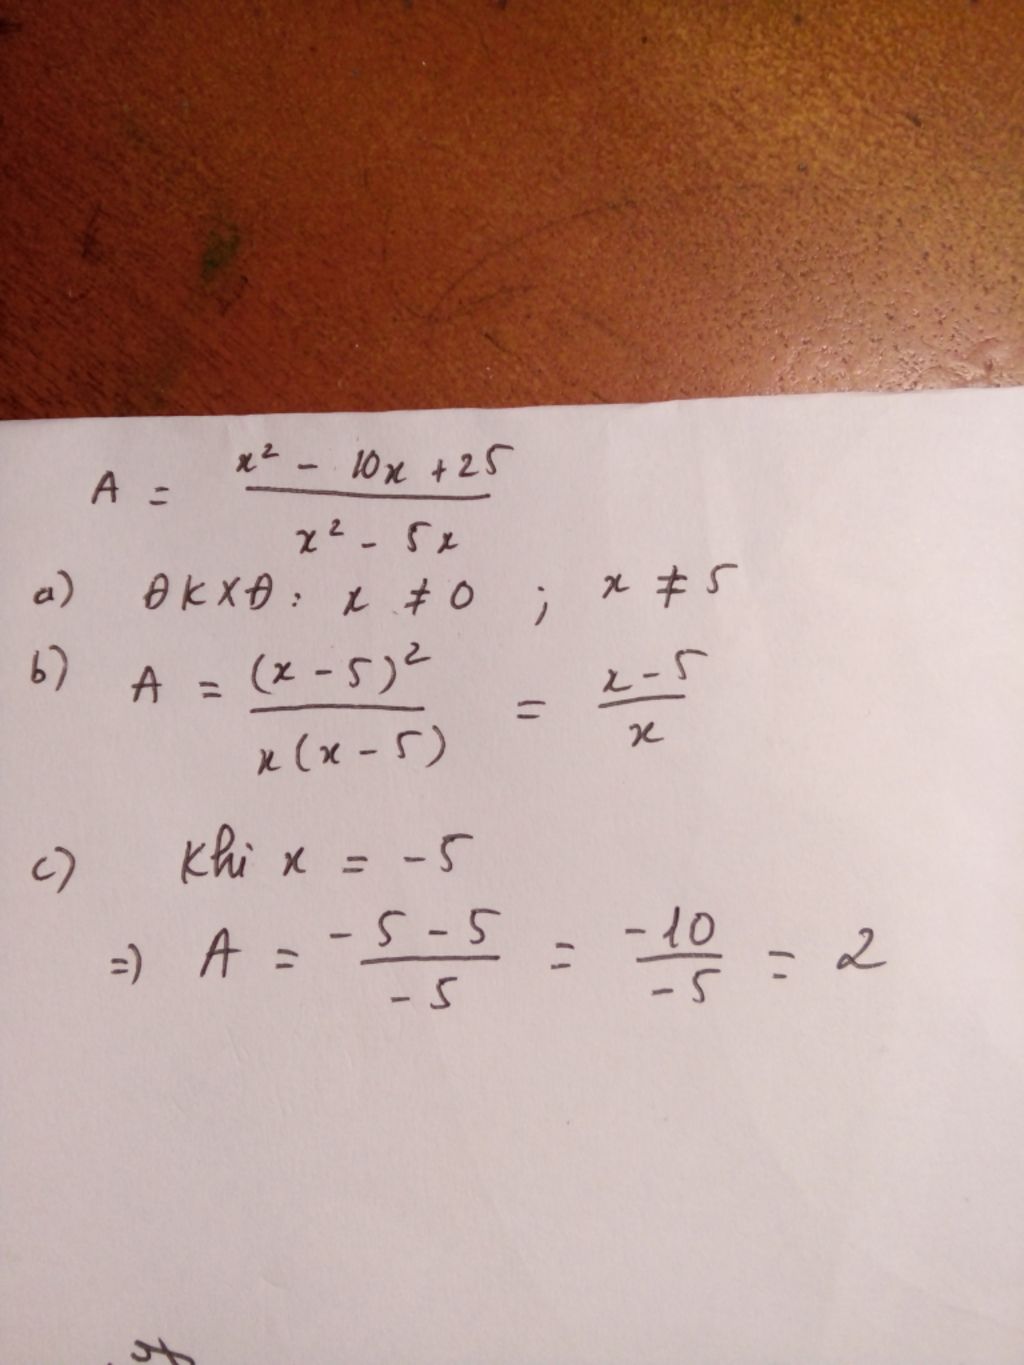 A = (x² - 10x + 25) / (x² - 5x)
a) ĐKXĐ: x ≠ 0 ; x ≠ 5
b) A = (x - 5)² / x(x - 5) = (x - 5) / x
c) Khi x = -5
=) A = (-5 - 5) / -5 = -10 / -5 = 2